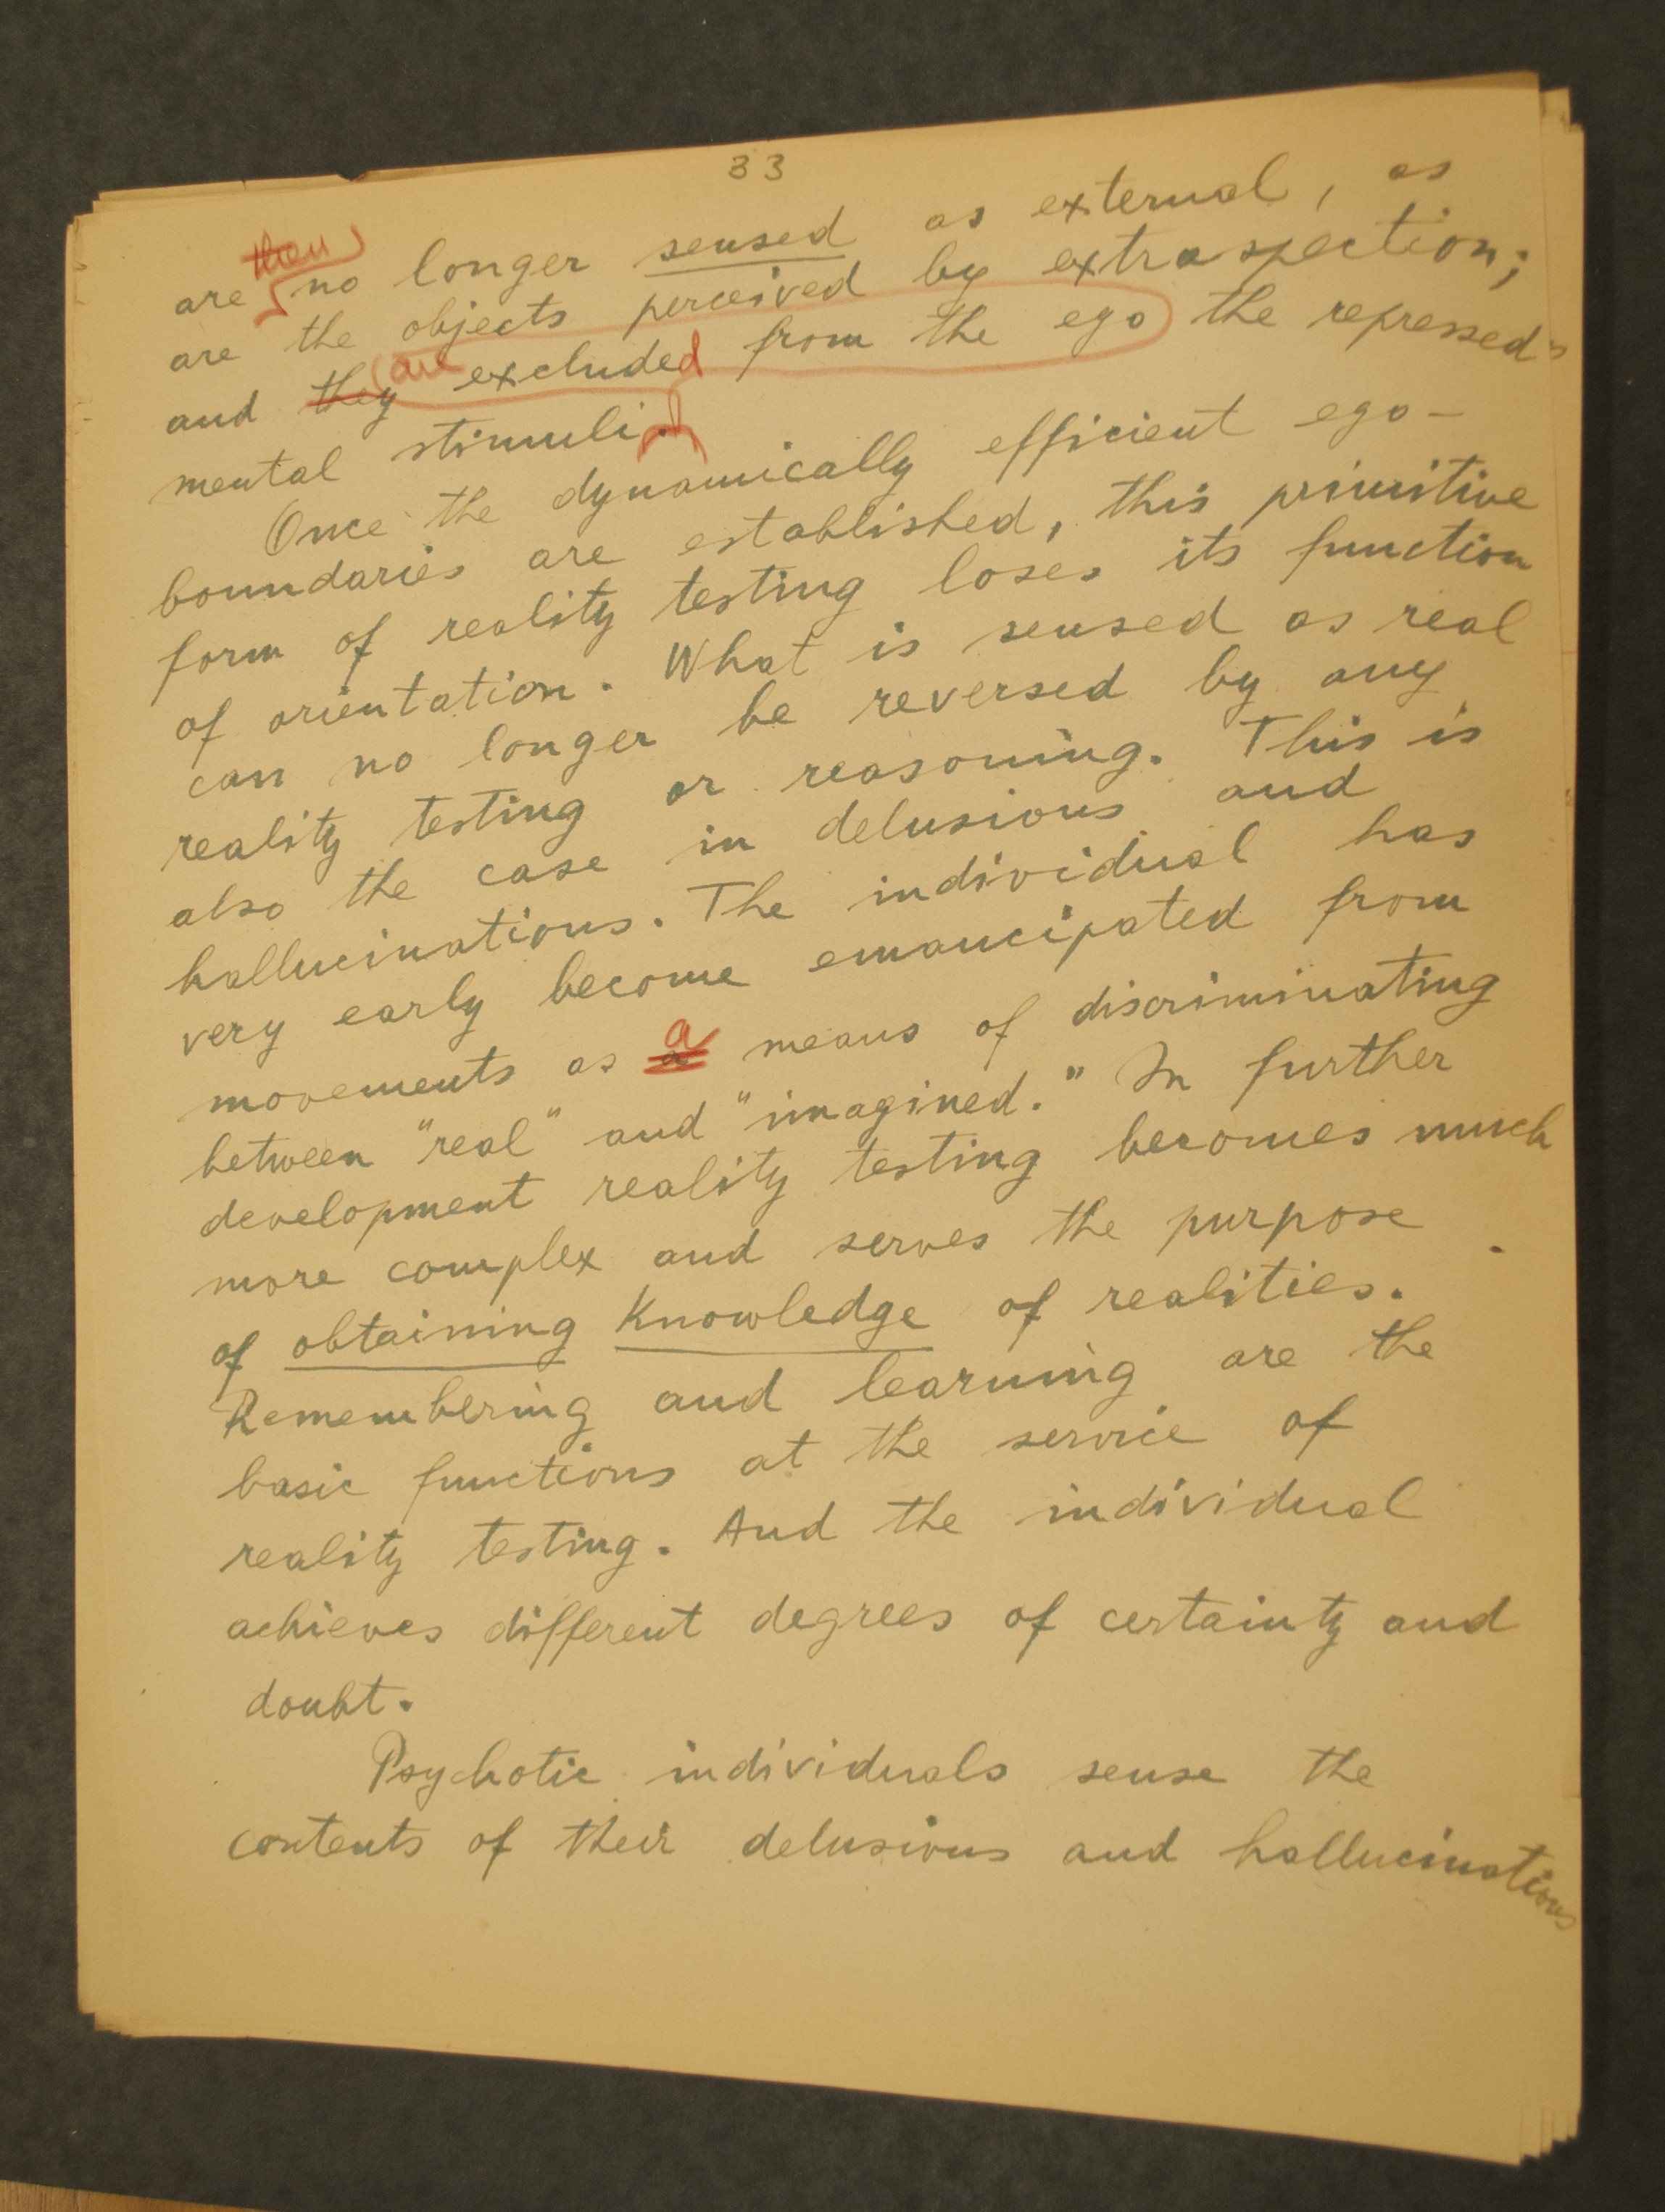 33
then
are no longer sensed as external, as
are the objects perceived by extraspection;
and they are excluded from the ego the repressed
mental stimuli.
Once the dynamically efficient ego-
boundaries are established, this primitive
form of reality testing loses its function
of orientation. What is sensed as real
can no longer be reversed by any
reality testing or reasoning. This is
also the case in delusions and
hallucinations. The individual has
very early become emancipated from
movements as a means of discriminating
between "real" and "imagined." In further
development reality testing becomes much
more complex and serves the purpose
of obtaining Knowledge of realities.
Remembering and learning are the
basic functions at the service of
reality testing. And the individual
achieves different degrees of certainty and
doubt.
Psychotic individuals sense the
contents of their delusions and hallucinations